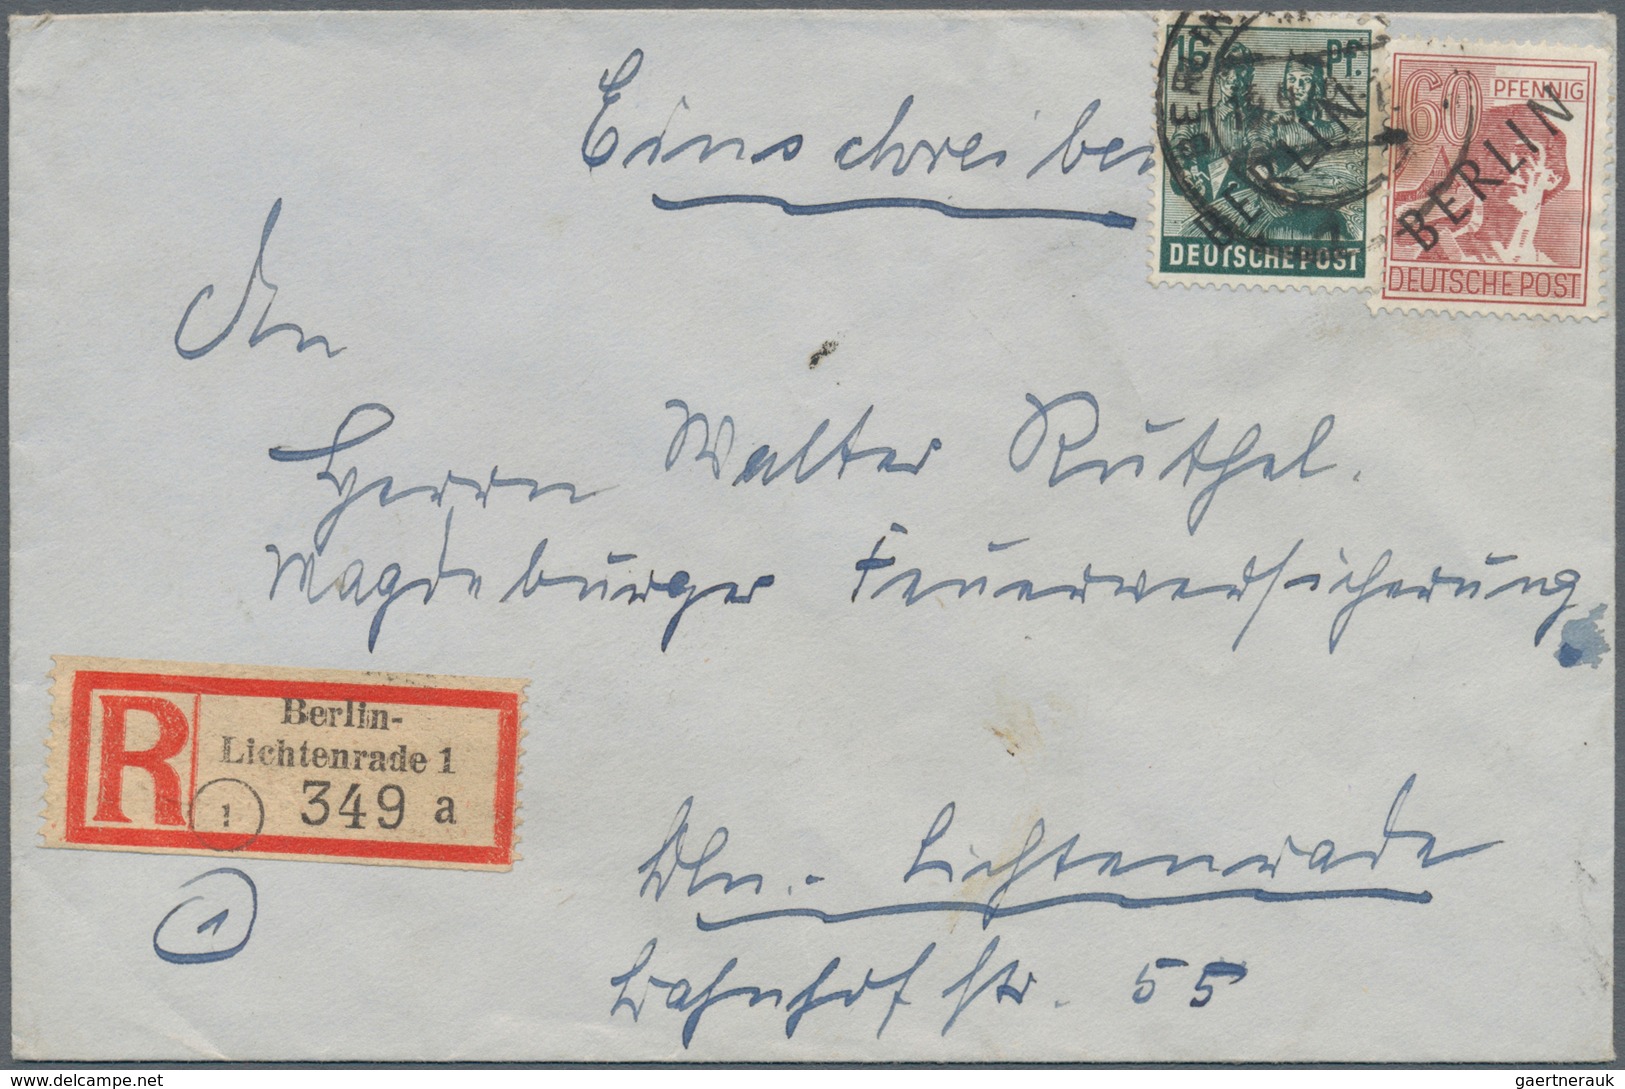 Einschreiben
16 Pf.
BERLIN
DEUTSCHE POST
60 PFENNIG
BERLIN
DEUTSCHE POST
BERLIN
An
Herrn Walter Rüthel.
Magdeburger Feuerversicherung
R
Berlin-
Lichtenrade 1
1 349 a
1
Bln.- Lichtenrade
Bahnhofstr. 55
© www.delcampe.net
gaertnerauk